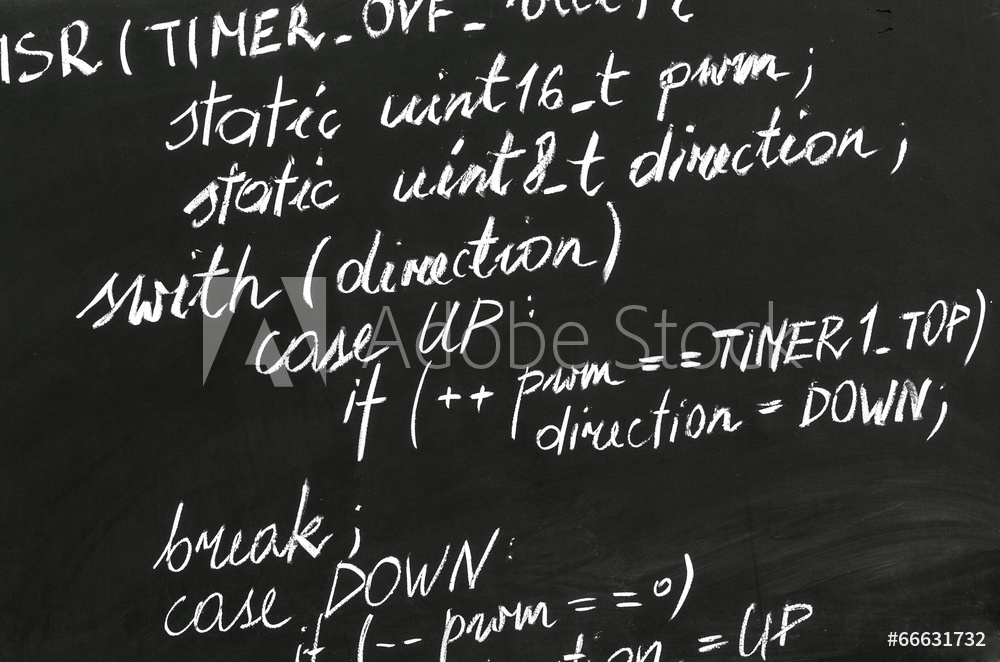 ISR(TIMER_OVF_
static uint16_t pwm;
static uint8_t direction;
swith (direction)
case UP:
if (++ pwm == TIMER1_TOP)
direction = DOWN;
break;
case DOWN:
if (-- pwm == 0)
direction = UP
Adobe Stock
#66631732